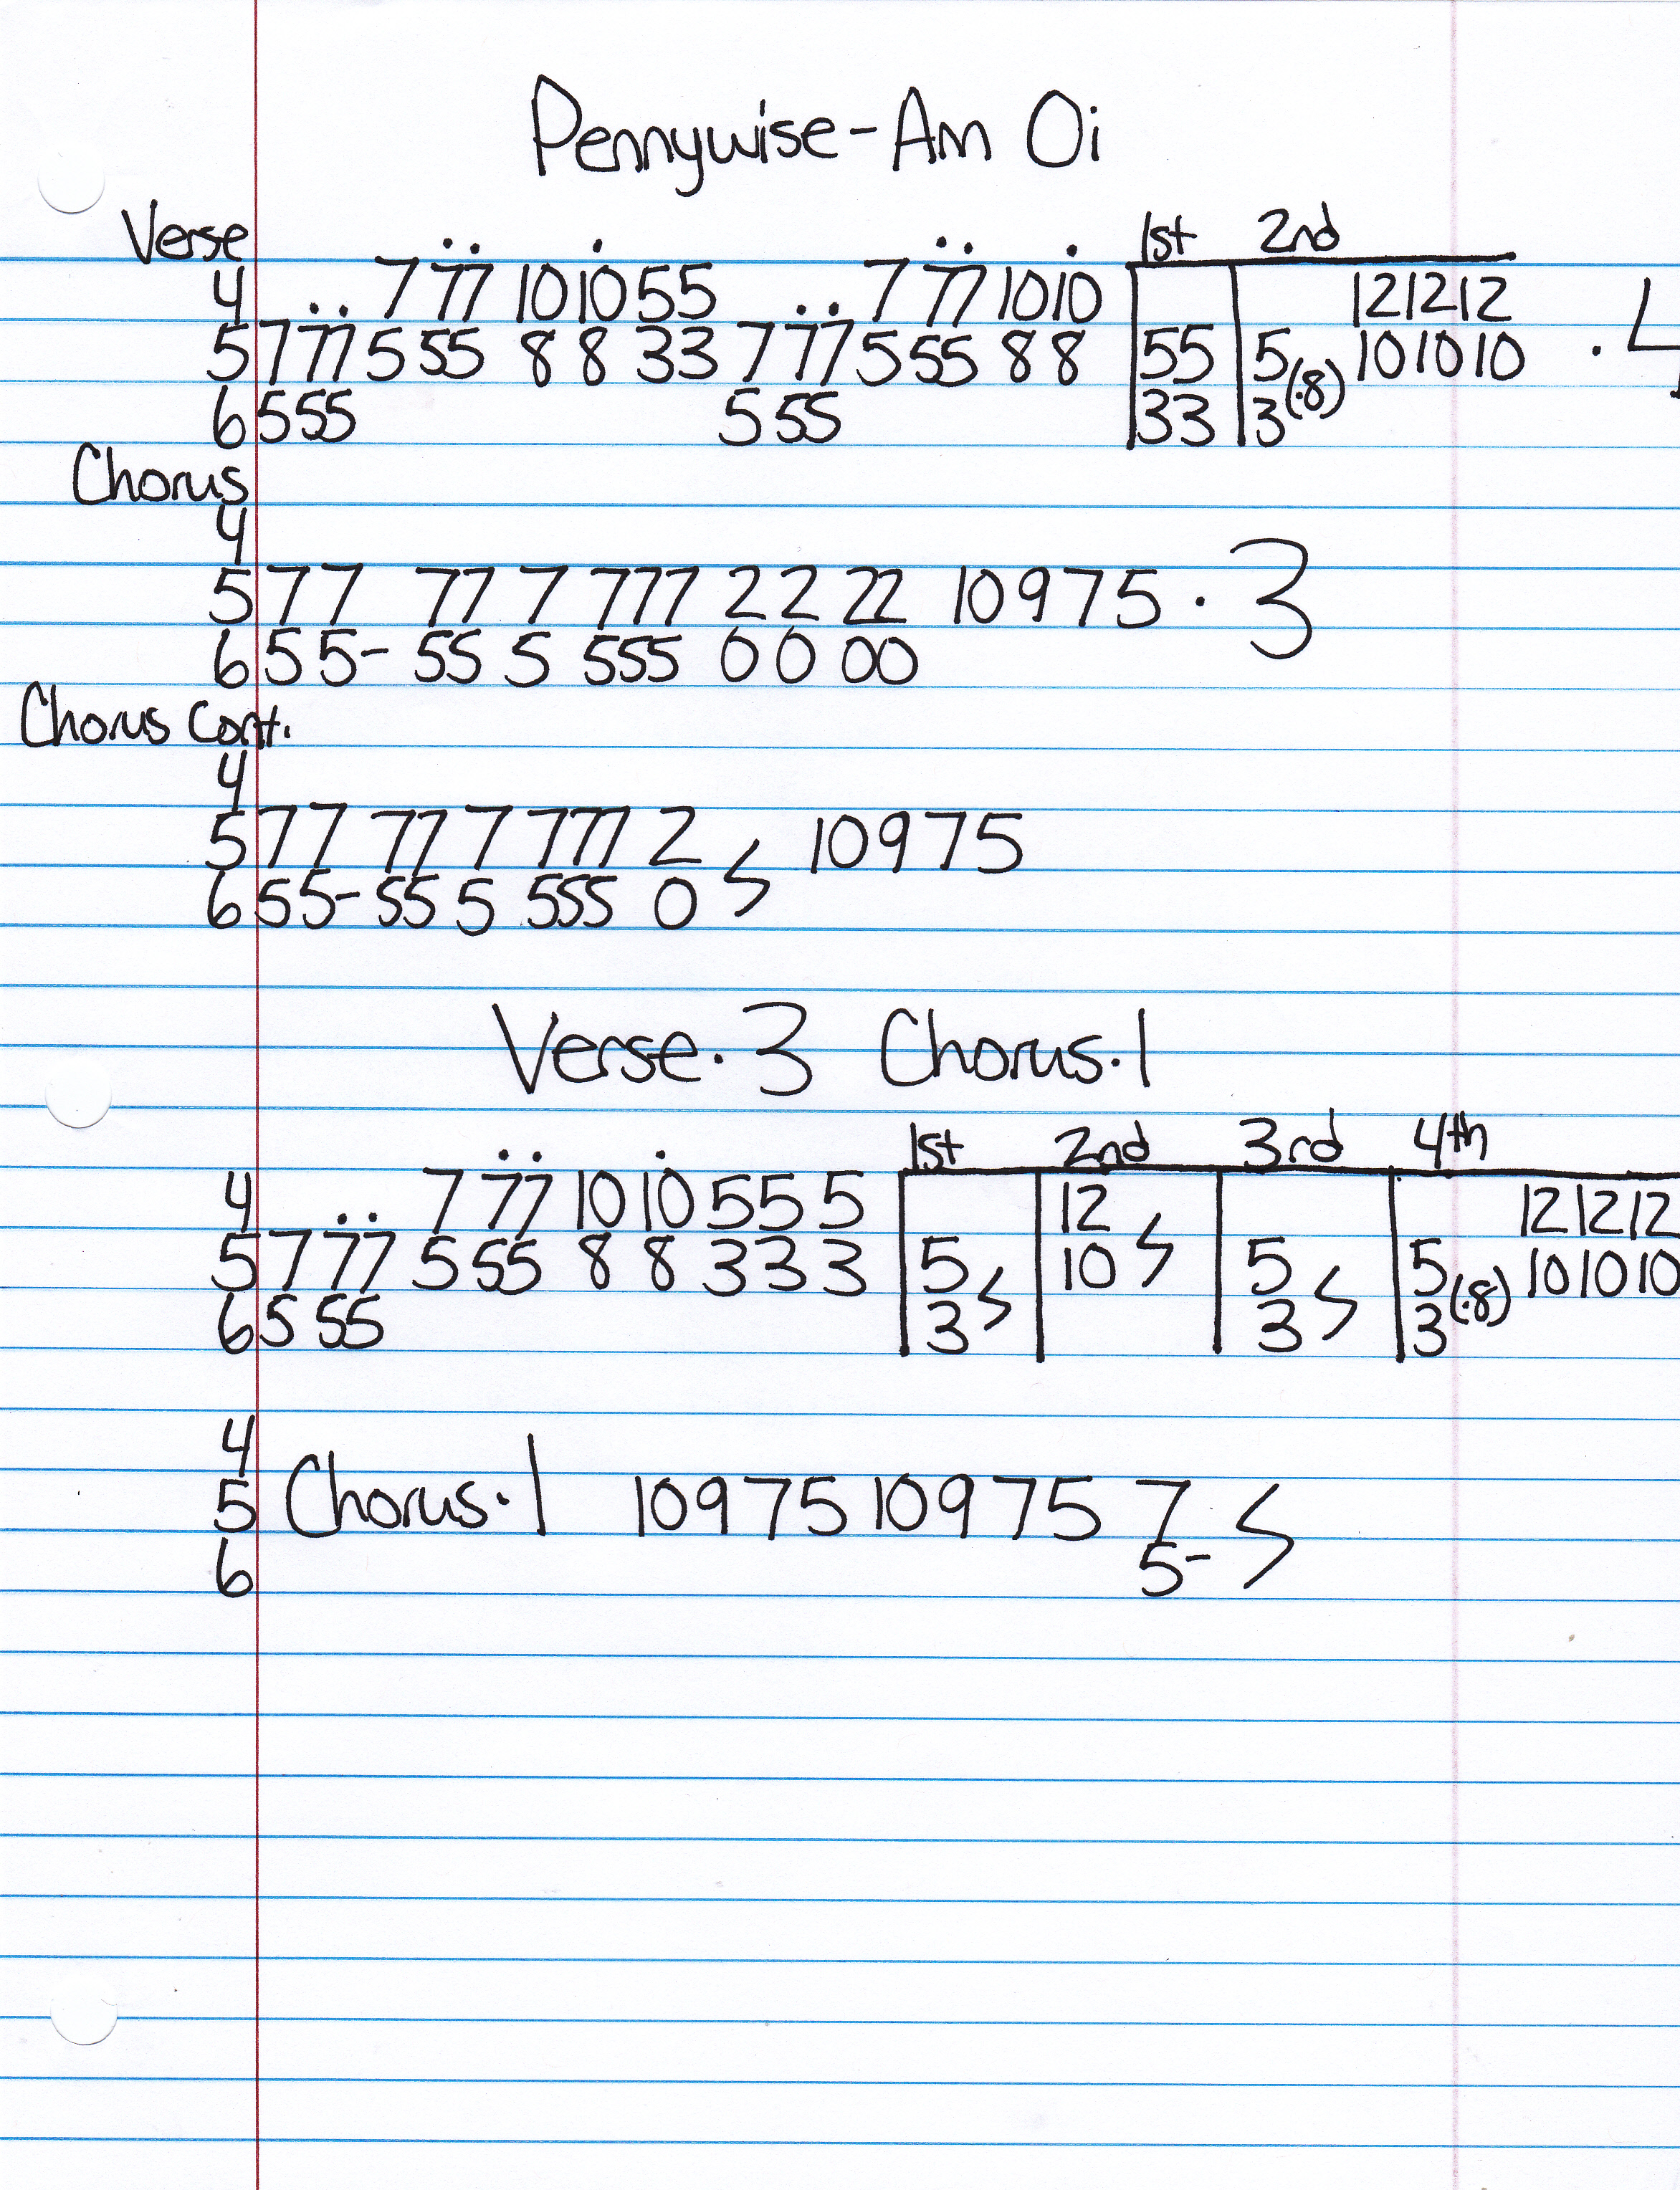 Pennywise-Am Oi
Verse 1st 2nd
4 .. 7 77 10 10 55 .. 7 77 10 10 12 12 12
5 7 77 5 55 8 8 33 7 77 5 55 8 8 55 5 (.8) 10 10 10 .
6 5 55 5 55 33 3
Chorus
4
5 77 77 7 777 2 2 22 10 9 7 5 . 3
6 55- 55 5 555 0 0 00
Chorus Cont.
4
5 77 77 7 777 2 10 9 7 5
6 55- 55 5 555 0
Verse.3 Chorus.1
1st 2nd 3rd 4th
4 .. 7 77 10 10 55 5 12 12 12 12
5 7 77 5 55 8 8 33 3 5 10 5 5 (.8) 10 10 10
6 5 55 3 3 3
4
5 Chorus.1 10 9 7 5 10 9 7 5 7
6 5-